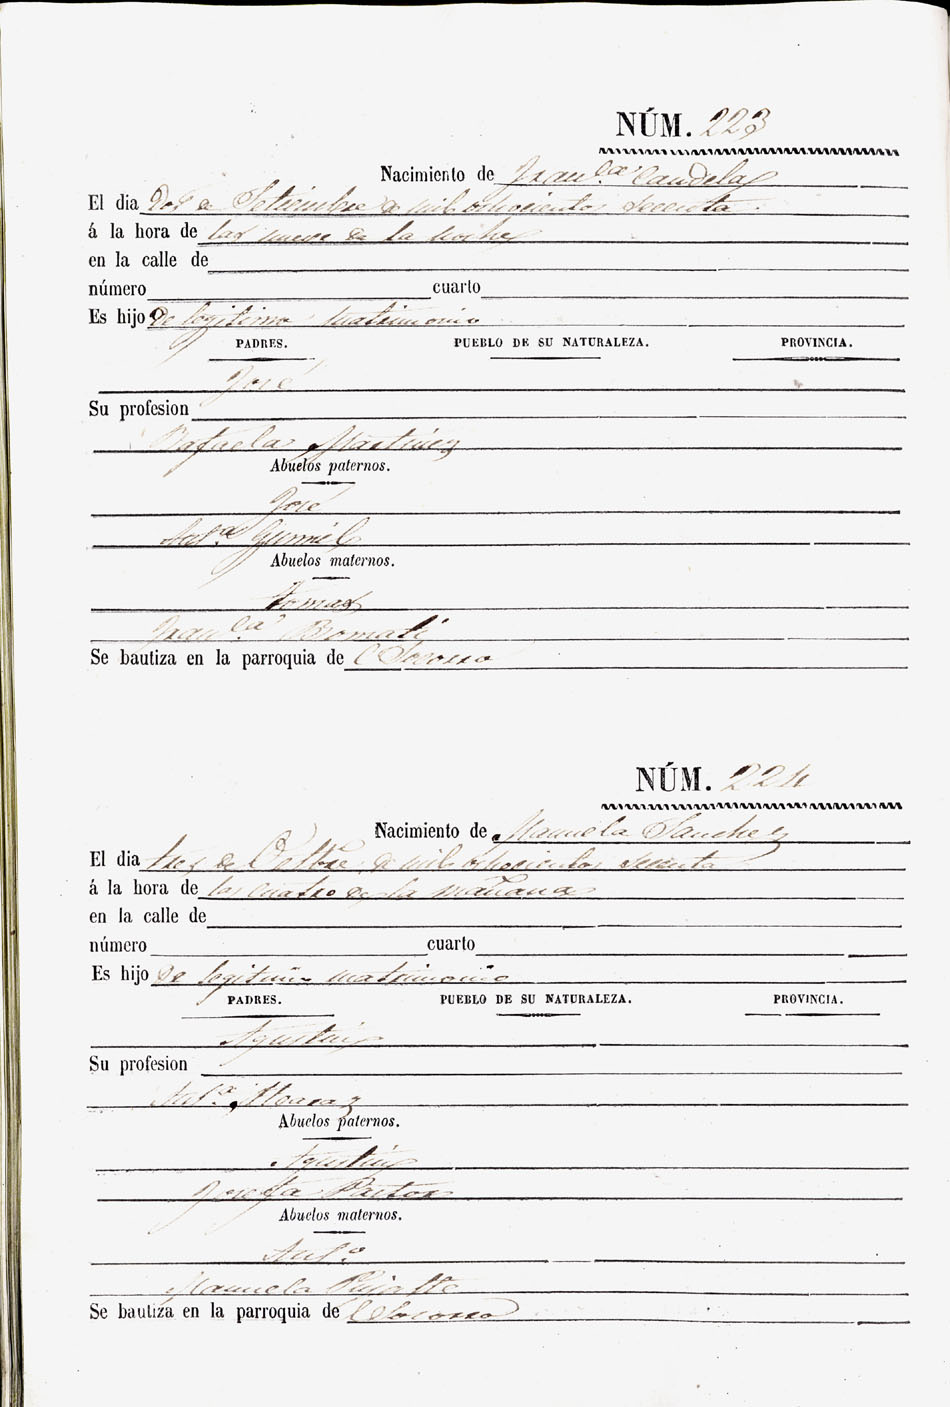 NÚM. 223
Nacimiento de Fran.ca Candela
El dia dos de Setiembre de mil ochocientos sesenta
á la hora de las nueve de la noche
en la calle de
número cuarto
Es hijo de legitimo matrimonio
PADRES. PUEBLO DE SU NATURALEZA. PROVINCIA.
José
Su profesion
Rafaela Martinez
Abuelos paternos.
José
Ant.a
Abuelos maternos.
Tomas
Fran.ca
Se bautiza en la parroquia de l Socorro
NÚM. 224
Nacimiento de Manuela Sanchez
El dia tres de Octbre de mil ochocientos sesenta
á la hora de las cuatro de la mañana
en la calle de
número cuarto
Es hijo de legitimo matrimonio
PADRES. PUEBLO DE SU NATURALEZA. PROVINCIA.
Agustin
Su profesion
Ant.a Alcaraz
Abuelos paternos.
Agustin
Josefa Pastor
Abuelos maternos.
Ant.o
Manuela Pujalte
Se bautiza en la parroquia de l Socorro